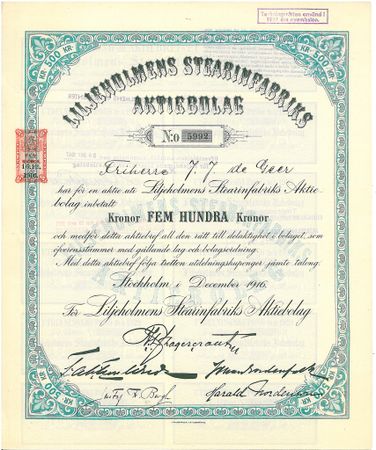 KR. 500 KR.
KR. 500 KR.
LILJEHOLMENS STEARINFABRIKS
AKTIEBOLAG
N:o 5992
FEM
1916
Friherre J. J. de Geer
har för en aktie uti Liljeholmens Stearinfabriks Aktie-
bolag inbetalt
Kronor FEM HUNDRA Kronor
och medför detta aktiebref all den rätt till delaktighet i bolaget, som
öfverensstämmer med gällande lag och bolagsordning.
Med detta aktiebref följa tretton utdelningskuponger jämte talong.
Stockholm i December 1916.
För Liljeholmens Stearinfabriks Aktiebolag
Harald Nordenson
KR. 500 KR.
KR. 500 KR.